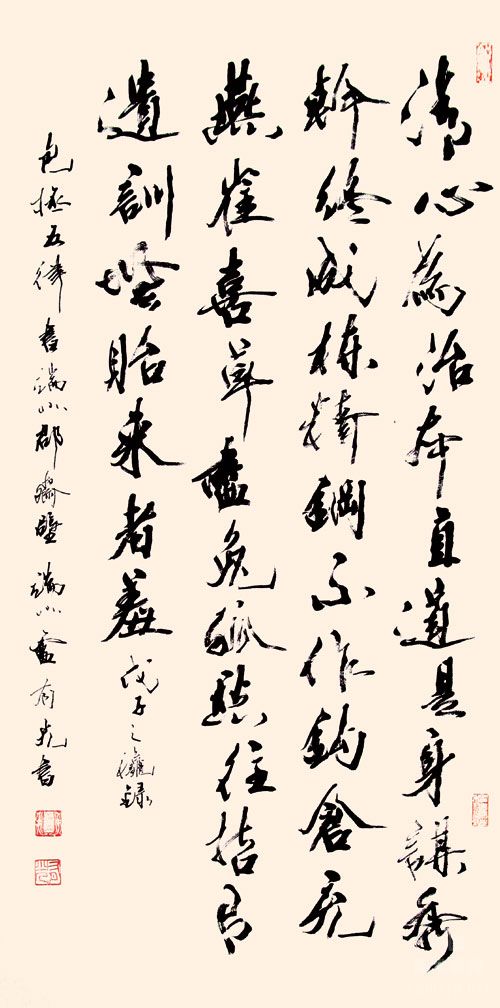 清心為治本直道是身謀秀
幹終成棟精鋼不作鉤倉充
燕雀喜草盡兔狐愁往哲有
遺訓貽來者羞 戊子之錄
包拯五律書端州郡齋壁 端州有光書